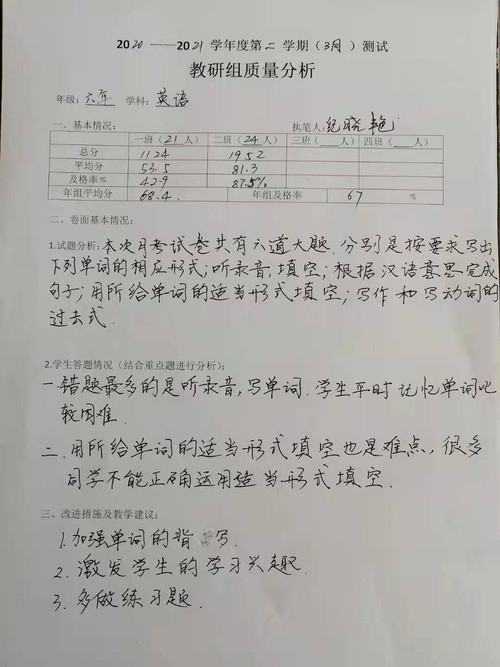 2020——2021学年度第二学期（3月）测试
教研组质量分析
年级：六年 学科：英语
一、基本情况： 执笔人：纪晓艳
一班（21人） 二班（24人） 三班（ 人） 四班（ 人）
总分 1124 1952
平均分 53.5 81.3
及格率% 42.9 87.5%
年组平均分 68.4 年组及格率 67 %
二、卷面基本情况：
1.试题分析：本次月考试卷共有六道大题.分别是按要求写出
下列单词的相应形式；听录音，填空；根据汉语意思完成
句子；用所给单词的适当形式填空；写作和写动词的
过去式.
2.学生答题情况（结合重点题进行分析）：
一.错题最多的是听录音，写单词.学生平时记忆单词比
较困难.
二.用所给单词的适当形式填空也是难点，很多
同学不能正确运用适当形式填空.
三、改进措施及教学建议：
1.加强单词的背写.
2.激发学生的学习兴趣.
3.多做练习题.